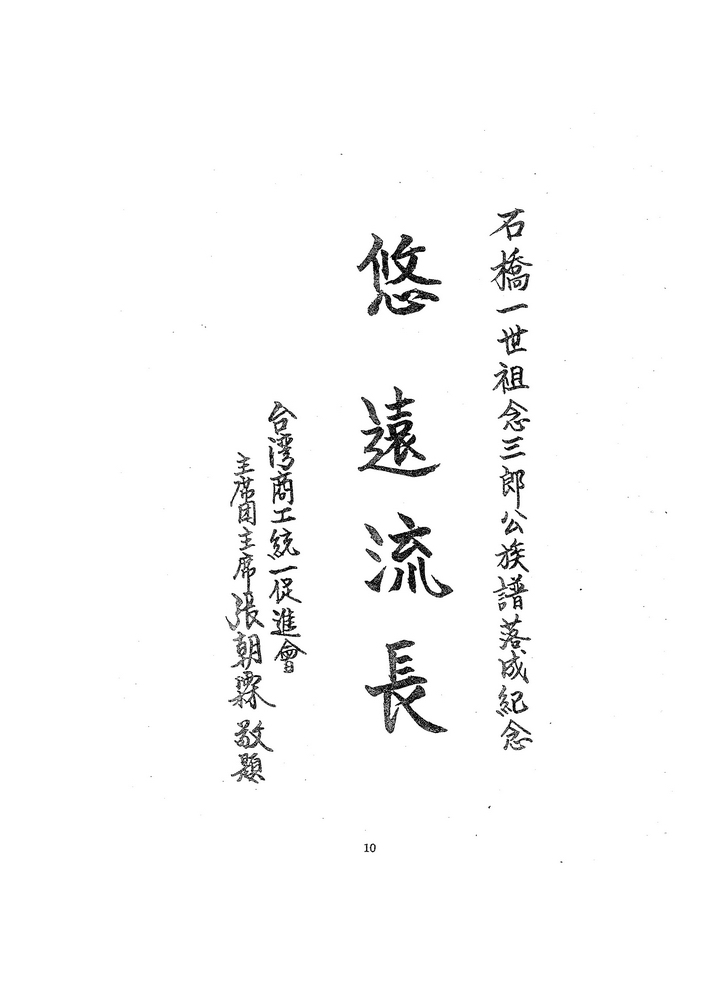 石橋一世祖念三郎公族譜落成紀念
悠遠流長
台灣商工統一促進會
主席团主席張朝霖敬題
10